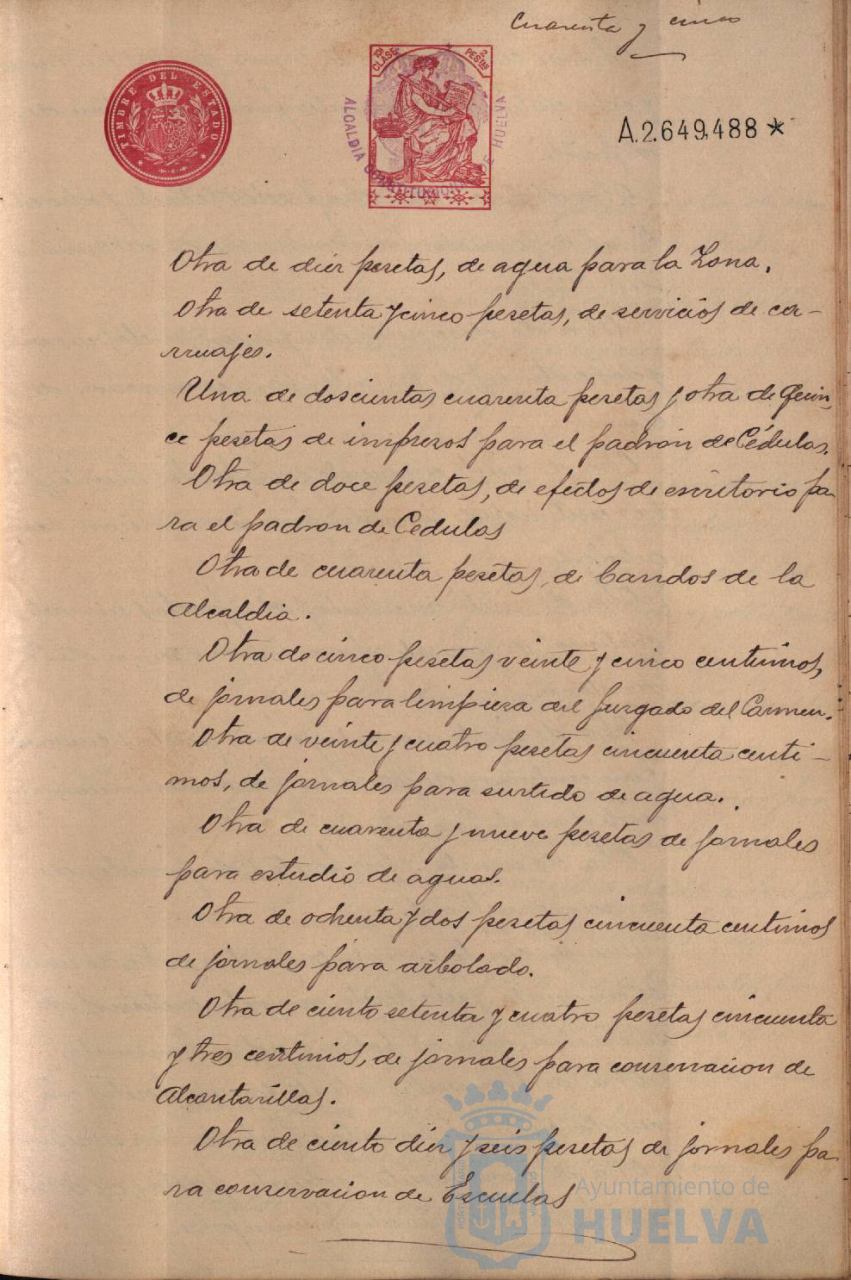 Cuarenta y cinco
TIMBRE DEL ESTADO
10ª CLASE 2 PESTAS
ALCALDIA CONSTITUCIONAL DE HUELVA
A.2.649,488 *
Otra de diez pesetas, de agua para la Zona.
Otra de setenta y cinco pesetas, de servicios de ca-
rruajes.
Una de doscientas cuarenta pesetas y otra de quin-
ce pesetas de impresos para el padrón de Cédulas.
Otra de doce pesetas, de efectos de escritorio pa-
ra el padron de Cedulas
Otra de cuarenta pesetas, de bandos de la
Alcaldia.
Otra de cinco pesetas veinte y cinco centimos,
de jornales para limpieza del Juzgado del Carmen.
Otra de veinte y cuatro pesetas cincuenta centi-
mos, de jornales para surtido de agua.
Otra de cuarenta y nueve pesetas de jornales
para estudio de aguas.
Otra de ochenta y dos pesetas cincuenta centimos
de jornales para arbolado.
Otra de ciento setenta y cuatro pesetas cincuenta
y tres centimos, de jornales para conservacion de
Alcantarillas.
Otra de ciento diez y seis pesetas de jornales pa-
ra conservacion de Escuelas
Ayuntamiento de
HUELVA